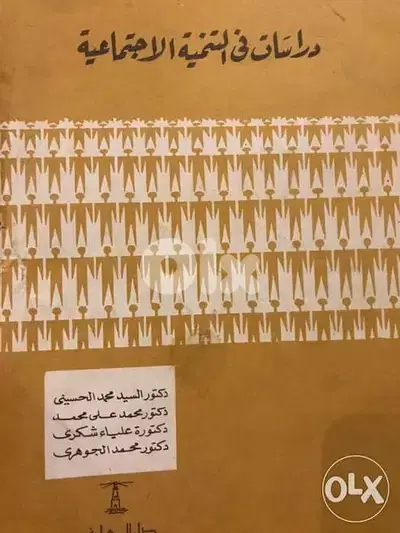 دراسات في التنمية الاجتماعية
olx
دكتور السيد محمد الحسيني
دكتور محمد على محمد
دكتورة علياء شكرى
دكتور محمد الجوهرى
OLX